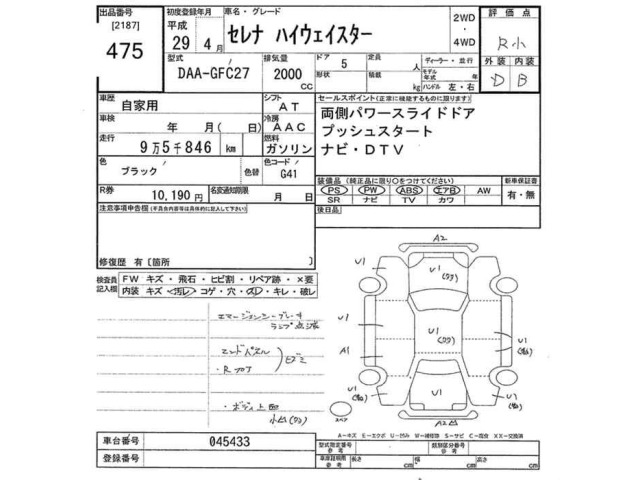 出品番号
[2187]
475
初度登録年月
平成
29 4月
車名・グレード
セレナ ハイウェイスター
2WD
・
4WD
評価点
R小
外装 内装
D B
型式
DAA-GFC27
排気量
2000
CC
ドア 5
形状
定員 人
積載 kg
ディーラー・並行
モデル年式 年
ハンドル 左・右
車歴
自家用
シフト
AT
車検
年 月( )日
冷房
AAC
走行
9万5千846 km
燃料
ガソリン
色
ブラック
色替
色コード
G41
R券
10,190円
名変通知期限
月 日
セールスポイント(正常に機能するものに限ります)
両側パワースライドドア
プッシュスタート
ナビ・DTV
装備品 (純正品に限り○をつけてください)
PS PW ABS エアB AW
SR ナビ TV カワ
新車保証書
有・無
後日品
注意事項申告欄
修復歴 有 [箇所 ]
検査員
記入欄
FW キズ・飛石・ヒビ割・リペア跡・×要
内装 キズ・汚レ・コゲ・穴・スレ・キレ・破レ
エマージェンシーブレーキ
ランプ点滅
エンドパネル
・Rフロア
・ボディ上面
A2
U1
U1
U1
U1
A1
U1
U1
U1
U1
U1
A2
スペア
A-キズ E-エクボ U-凹み W-補修跡 S-サビ C-腐蝕 XX-交換済
車台番号
045433
登録番号
型式指定番号
参考
類別区分番号
参考
車庫証明用
参考
長さ cm
幅 cm
高さ cm